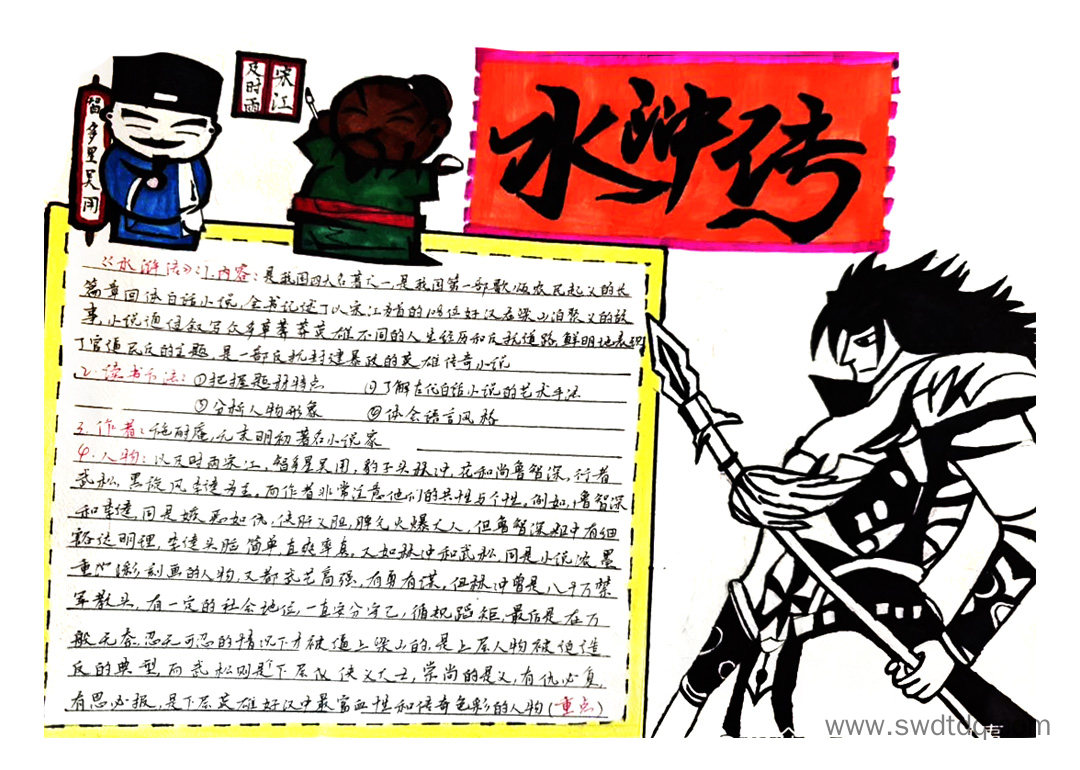 智多星吴用
宋江
及时雨
水浒传
《水浒传》:1.内容:是我国四大名著之一,是我国第一部歌颂农民起义的长
篇章回体白话小说,全书记述了以宋江为首的108位好汉在梁山泊聚义的故
事,小说通过叙写众多草莽英雄不同的人生经历和反抗道路,鲜明地表现
了官逼民反的主题,是一部反抗封建暴政的英雄传奇小说
2.读书方法:①把握题材特点 ②了解古代白话小说的艺术手法
③分析人物形象 ④体会语言风格
3.作者:施耐庵,元末明初著名小说家
4.人物:以及时雨宋江,智多星吴用,豹子头林冲,花和尚鲁智深,行者
武松,黑旋风李逵为主,而作者非常注意他们的共性与个性,例如,鲁智深
和李逵,同是嫉恶如仇,侠肝义胆,脾气火爆之人,但鲁智深粗中有细
豁达明理,李逵头脑简单,直爽率真,又如林冲和武松,同是小说浓墨
重彩刻画的人物,又都武艺高强,有勇有谋,但林冲曾是八十万禁
军教头,有一定的社会地位,一直安分守己,循规蹈矩,最后是在万
般无奈,忍无可忍的情况下才被逼上梁山的,是上层人物被迫造
反的典型,而武松则是下层义侠义之士,崇尚的是义,有仇必复,
有恩必报,是下层英雄好汉中最富血性和传奇色彩的人物(重点)